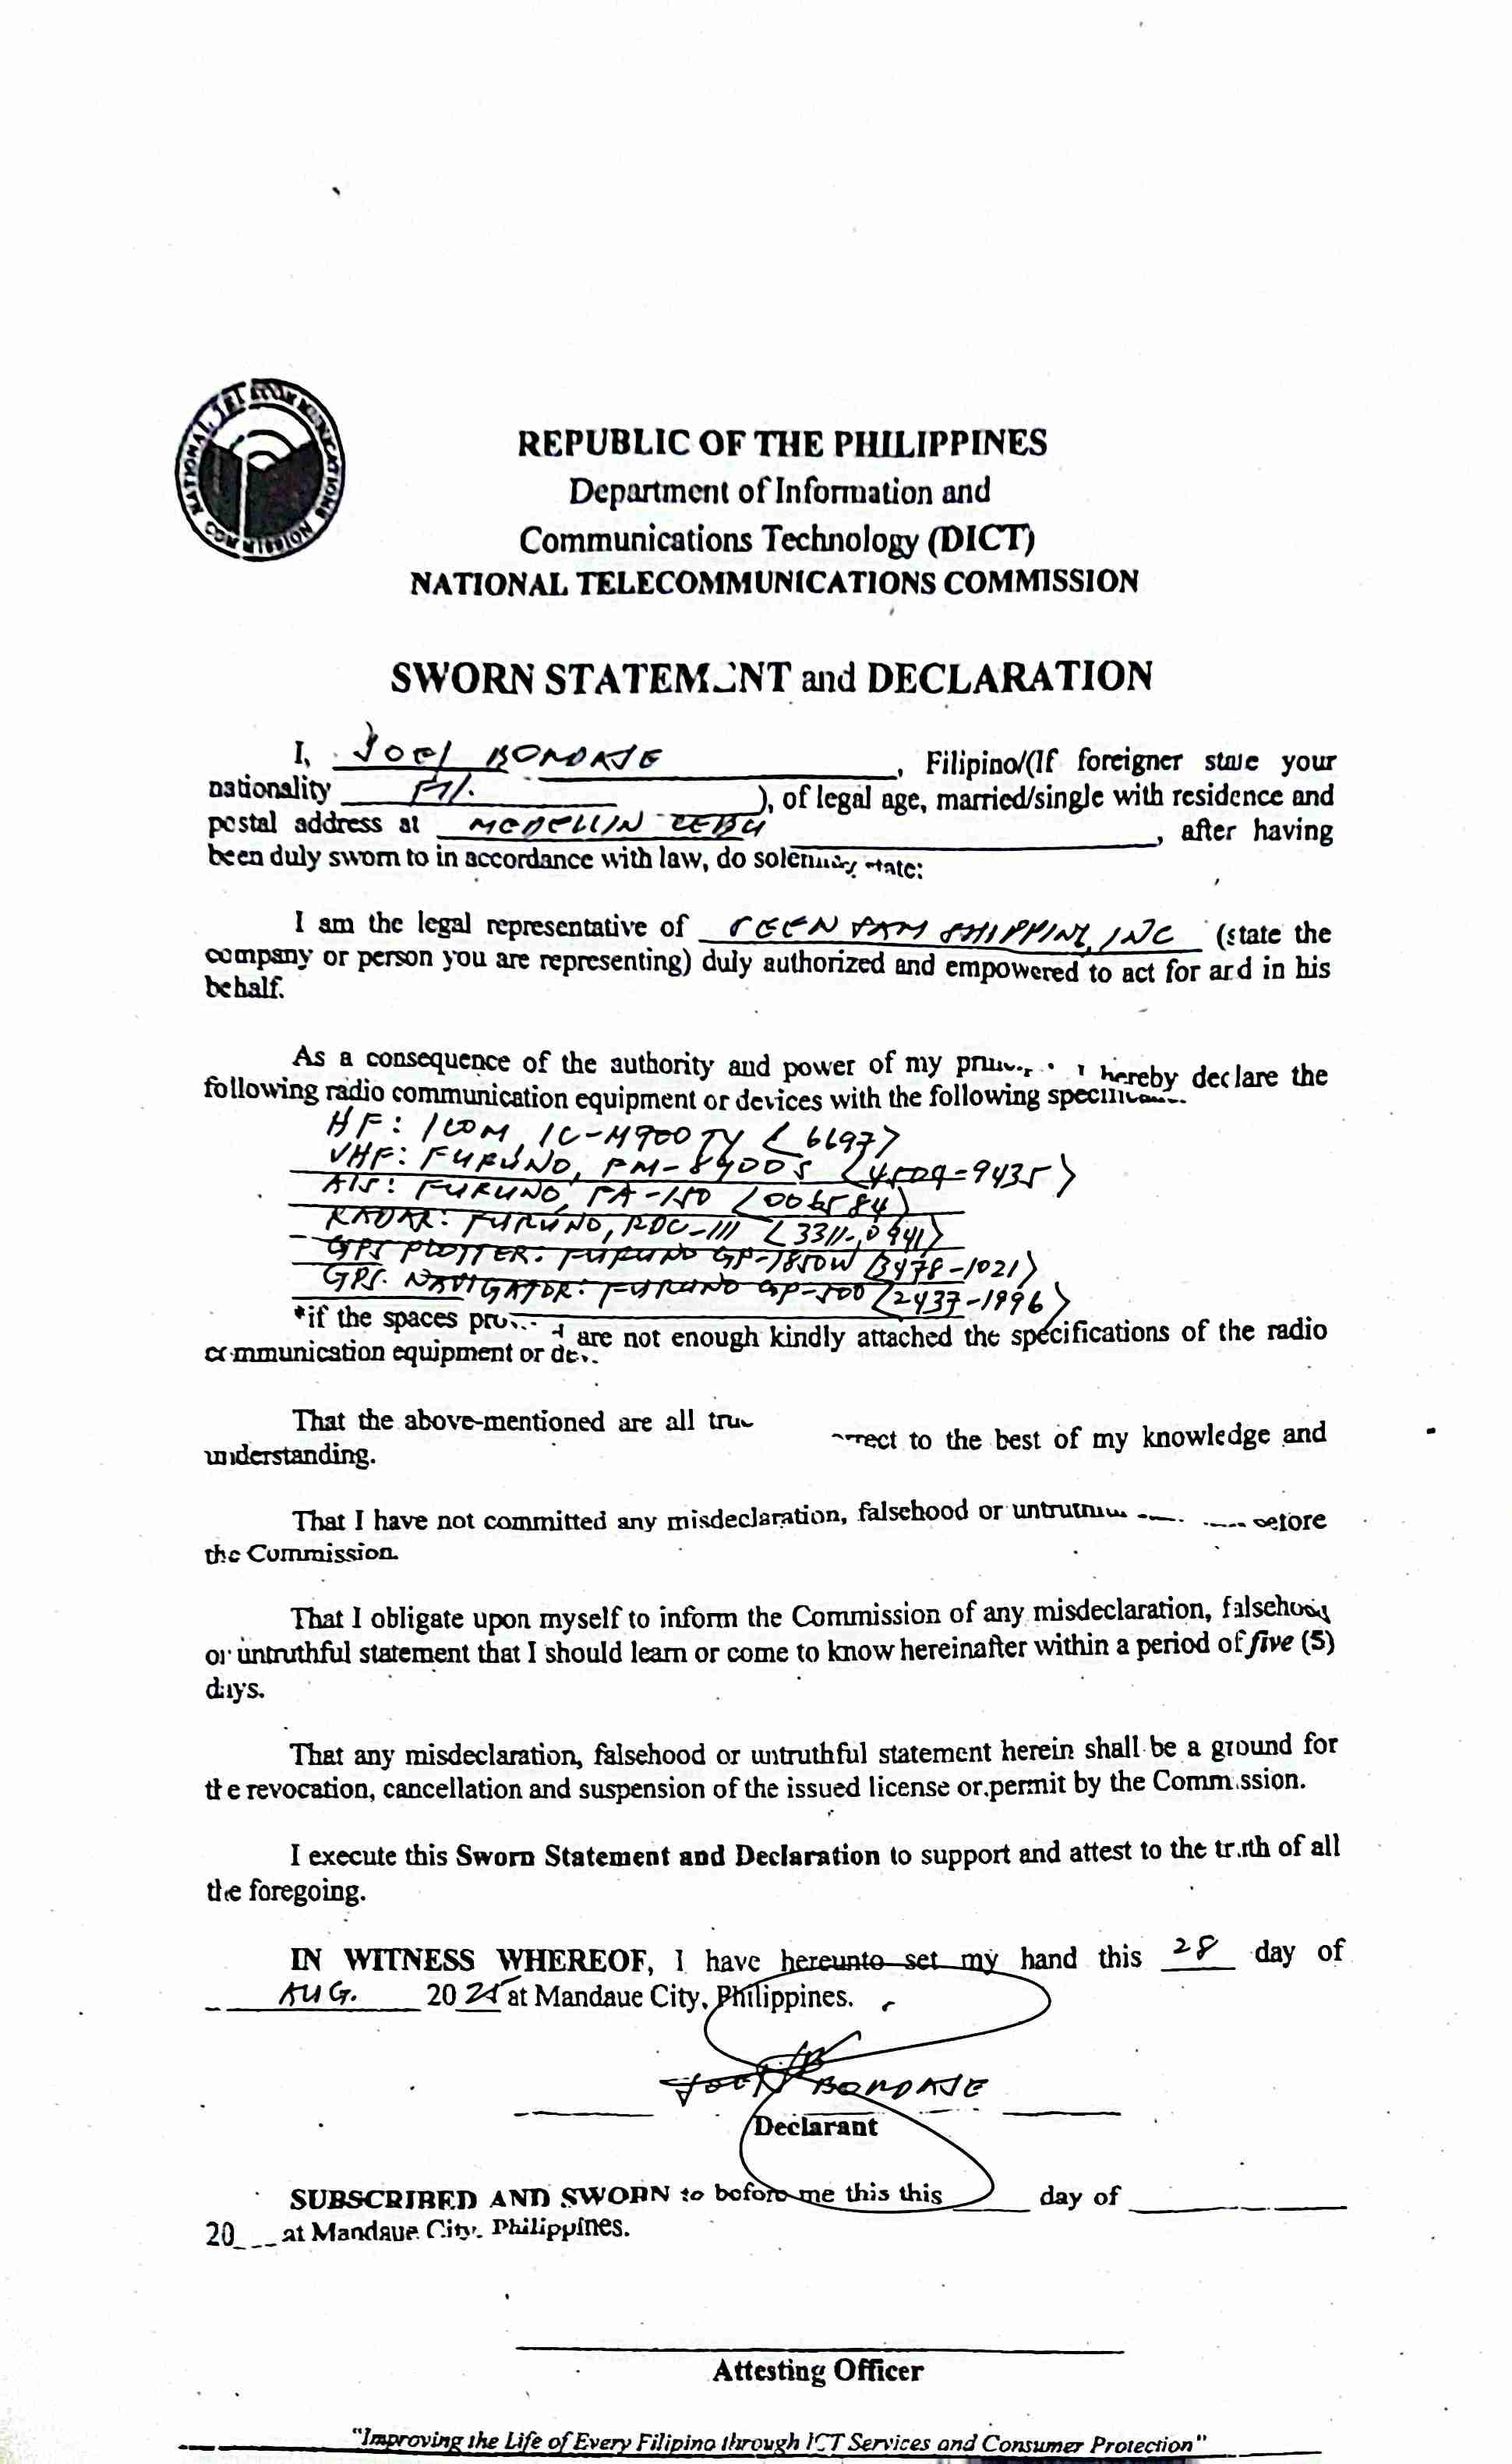 NATIONAL TELECOMMUNICATIONS COMMISSION
REPUBLIC OF THE PHILIPPINES
Department of Information and
Communications Technology (DICT)
NATIONAL TELECOMMUNICATIONS COMMISSION
SWORN STATEMENT and DECLARATION
I, Joel BONDAJE, Filipino/(If foreigner state your
nationality Fil.), of legal age, married/single with residence and
postal address at MEDELLIN CEBU, after having
been duly sworn to in accordance with law, do solemnly state:
I am the legal representative of SHIPPING, INC (state the
company or person you are representing) duly authorized and empowered to act for and in his
behalf.
As a consequence of the authority and power of my I hereby declare the
following radio communication equipment or devices with the following
HF: ICOM, IC-M700TY (6697)
VHF: FURUNO, FM-8900S
AIS: FURUNO, FA-150 (006584)
RADAR: FURUNO, RDC-111 (3311-0941)
GPS PLOTTER: FURUNO GP-1850W (3478-1021)
GPS NAVIGATOR: FURUNO GP-500 (2437-1996)
*if the spaces are not enough kindly attached the specifications of the radio
communication equipment or
That the above-mentioned are all true to the best of my knowledge and
understanding.
That I have not committed any misdeclaration, falsehood or before
the Commission.
That I obligate upon myself to inform the Commission of any misdeclaration, falsehood
or untruthful statement that I should learn or come to know hereinafter within a period of five (5)
days.
That any misdeclaration, falsehood or untruthful statement herein shall be a ground for
the revocation, cancellation and suspension of the issued license or permit by the Commission.
I execute this Sworn Statement and Declaration to support and attest to the truth of all
the foregoing.
IN WITNESS WHEREOF, I have hereunto set my hand this 28 day of
AUG. 2025 at Mandaue City, Philippines.
JOEL BONDAJE
Declarant
SUBSCRIBED AND SWORN to before me this this ____ day of ____
20____ at Mandaue City, Philippines.
Attesting Officer
"Improving the Life of Every Filipino through ICT Services and Consumer Protection"